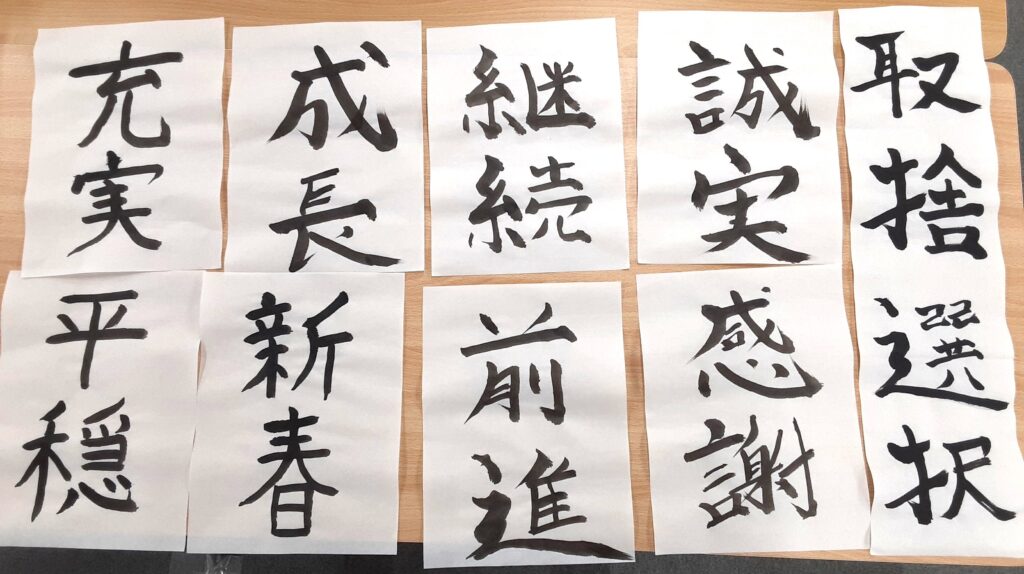 充実
成長
継続
誠実
取捨選択
平穏
新春
前進
感謝